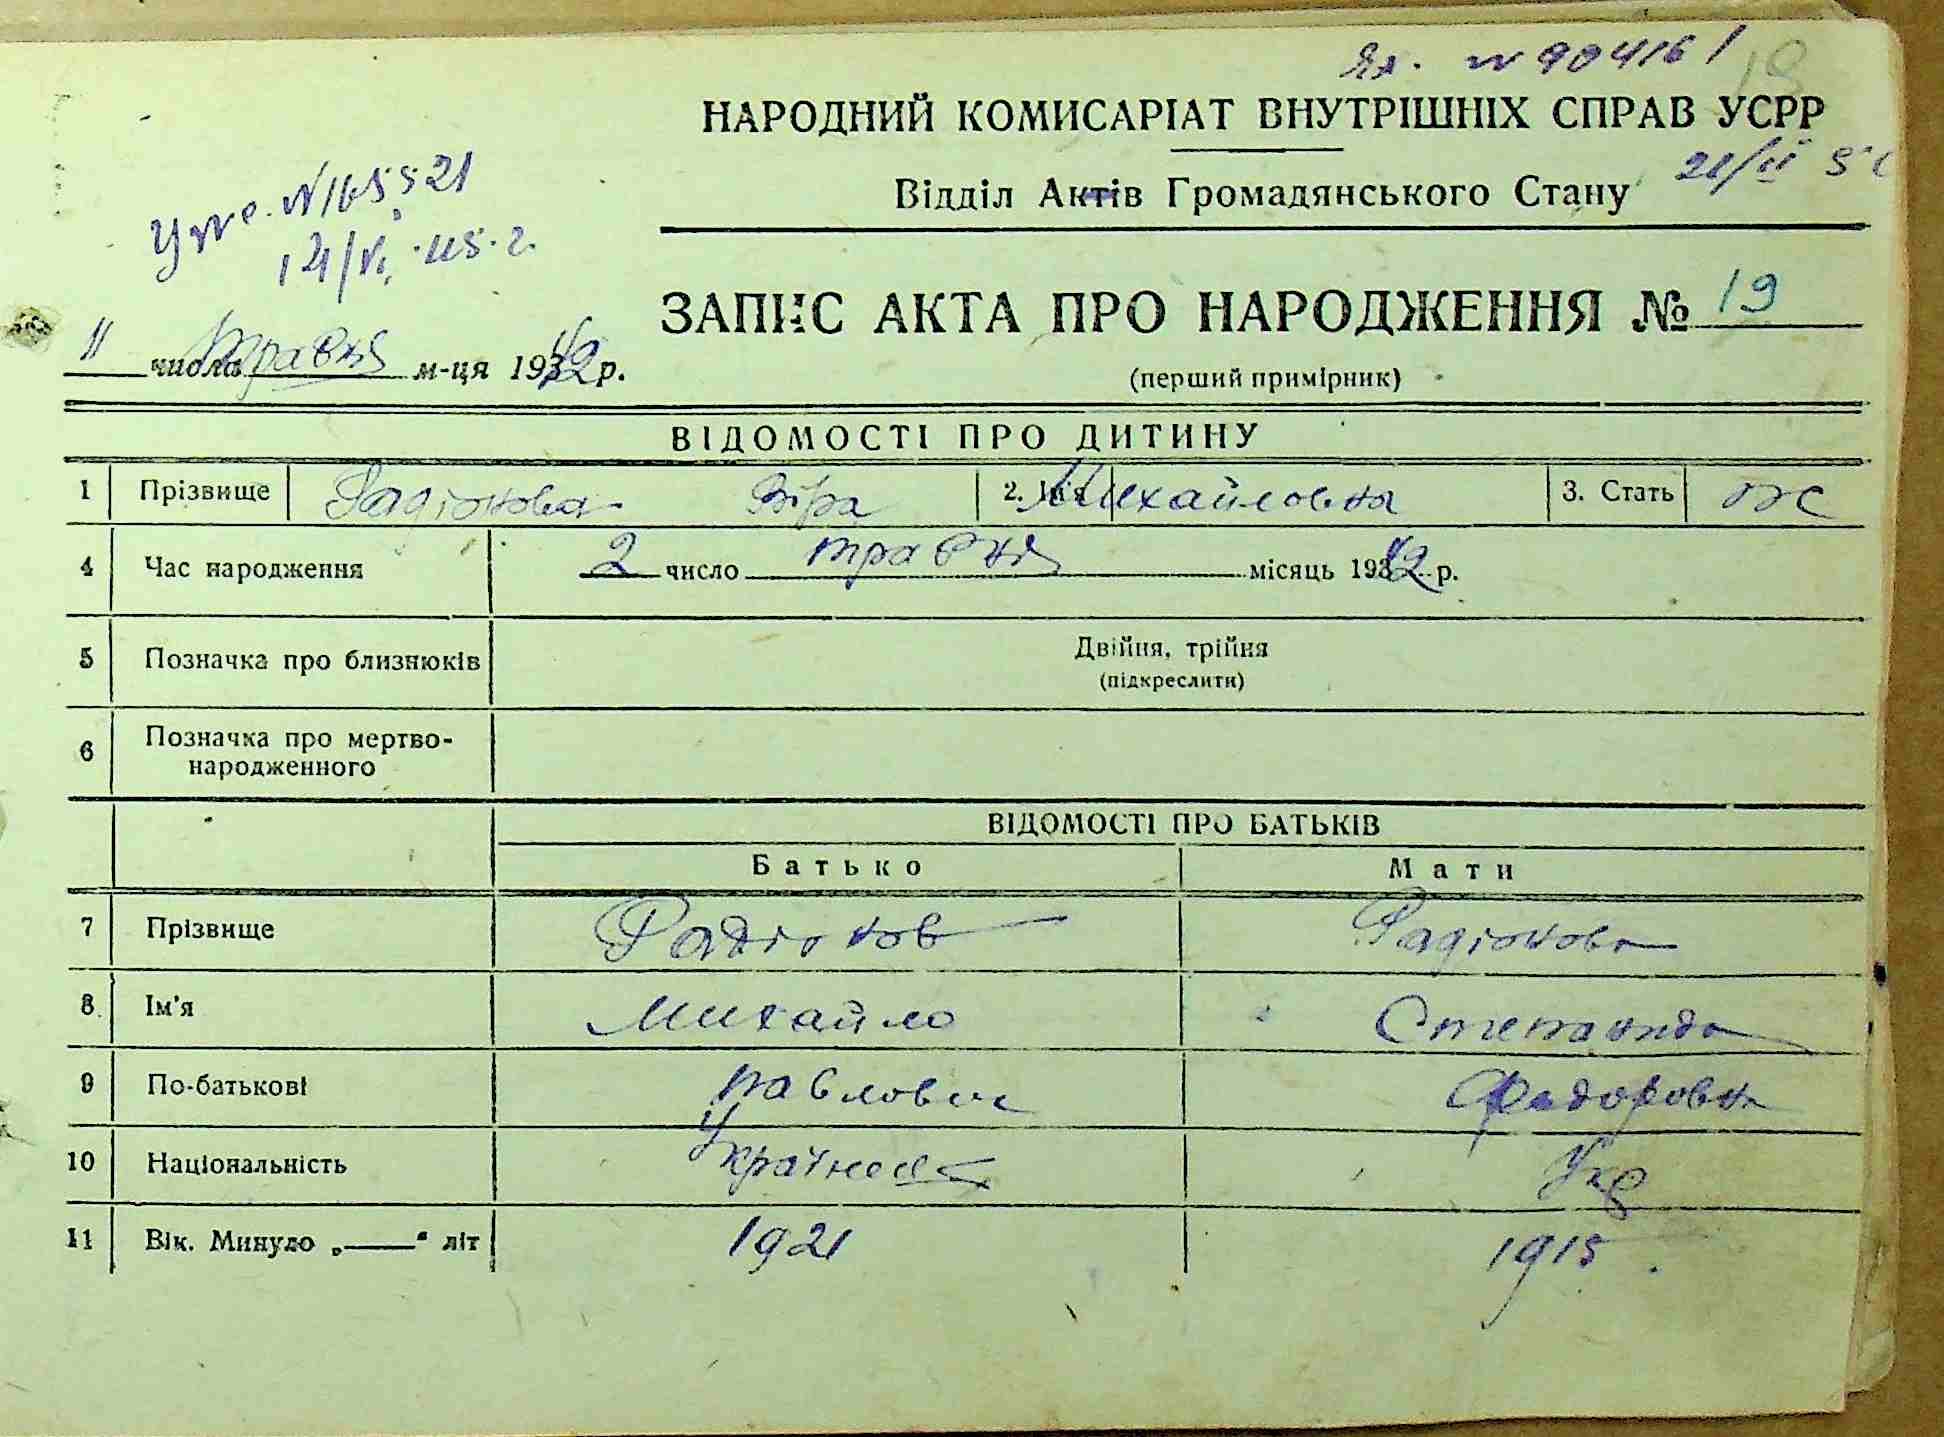 № 904161
18
НАРОДНИЙ КОМИСАРІАТ ВНУТРІШНІХ СПРАВ УСРР
21/II 5
Відділ Актів Громадянського Стану
№ 165521
ЗАПИС АКТА ПРО НАРОДЖЕННЯ № 19
11 числа травня м-ця 1942 р.
(перший примірник)
ВІДОМОСТІ ПРО ДИТИНУ
1 Прізвище Радіонова Віра 2. Ім'я Михайловна 3. Стать ж
4 Час народження 2 число травня місяць 1942 р.
5 Позначка про близнюків Двійня, трійня
(підкреслити)
6 Позначка про мертво-
народженного
ВІДОМОСТІ ПРО БАТЬКІВ
Батько Мати
7 Прізвище Радіонов Радіонова
8. Ім'я Михайло Степанида
9 По-батькові Павлович Федоровна
10 Національність Українець Укр
11 Вік. Минуло „——“ літ 1921 1915